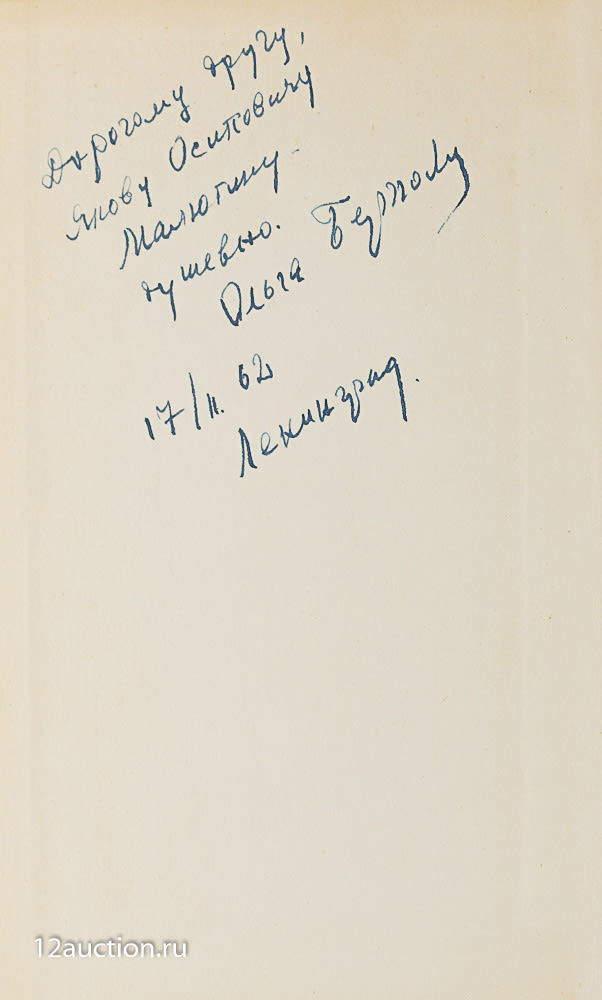 Дорогому другу,
Якову Осиповичу
Малютину –
душевно.
Ольга Берггольц
17/II. 62
Ленинград.
12auction.ru